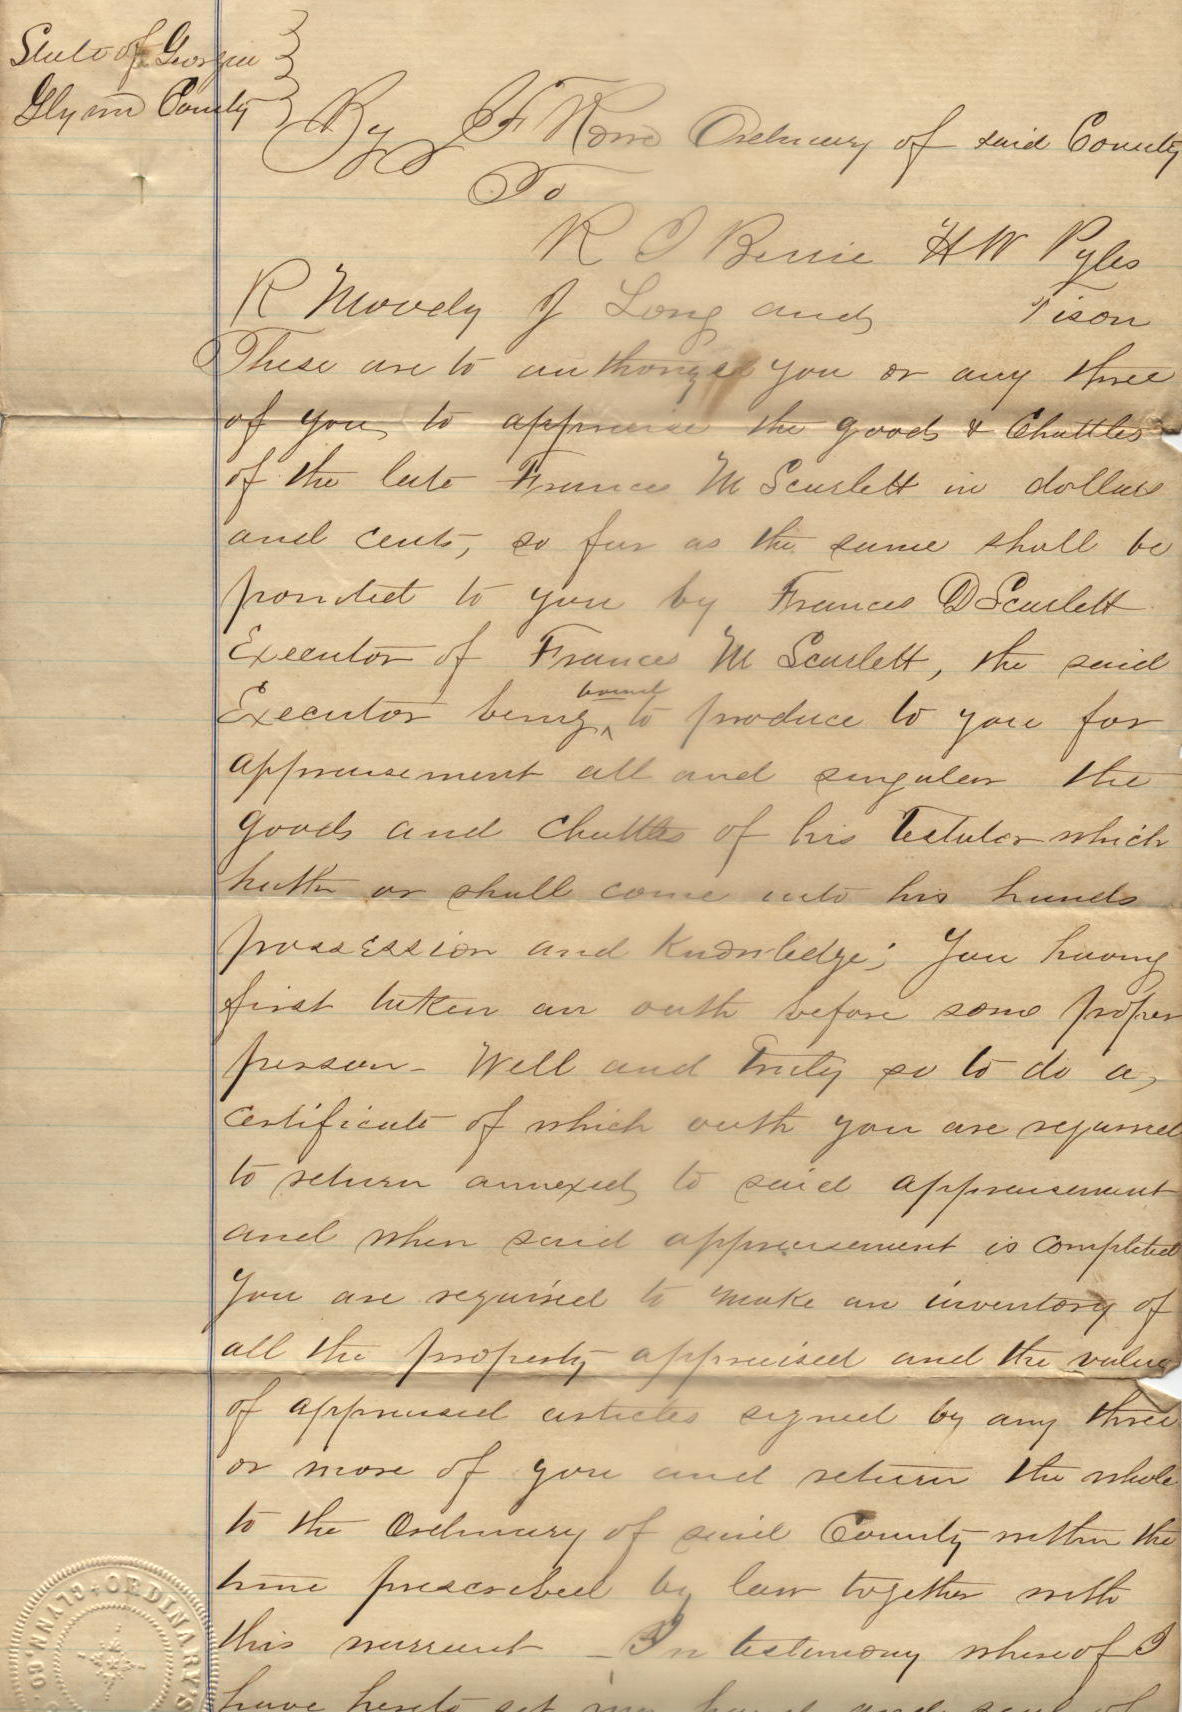 State of Georgia
Glynn County
By J F Ordinary of said County
To
R J Berrie H W Pyles
R Moody J Long and Tison
These are to authorize you or any three
of you to appraise the goods & Chattles
of the late Frances M Scarlett in dollars
and cents, so far as the same shall be
to you by Frances D Scarlett
Executor of Frances M Scarlett, the said
Executor being bound to produce to you for
appraisement all and singular the
goods and chattles of his Testator which
hath or shall come into his hands
possession and Knowledge; You having
first taken an oath before some proper
person - Well and Truly so to do a
certificate of which oath you are required
to return annexed to said appraisement
and when said appraisement is completed
You are required to make an inventory of
all the property appraised and the value
of appraised articles signed by any three
or more of you and return the whole
to the Ordinary of said County within the
time prescribed by law together with
this warrant - In testimony whereof I
have hereto set my hand and seal of
ORDINARY'S
GLYNN. CO.